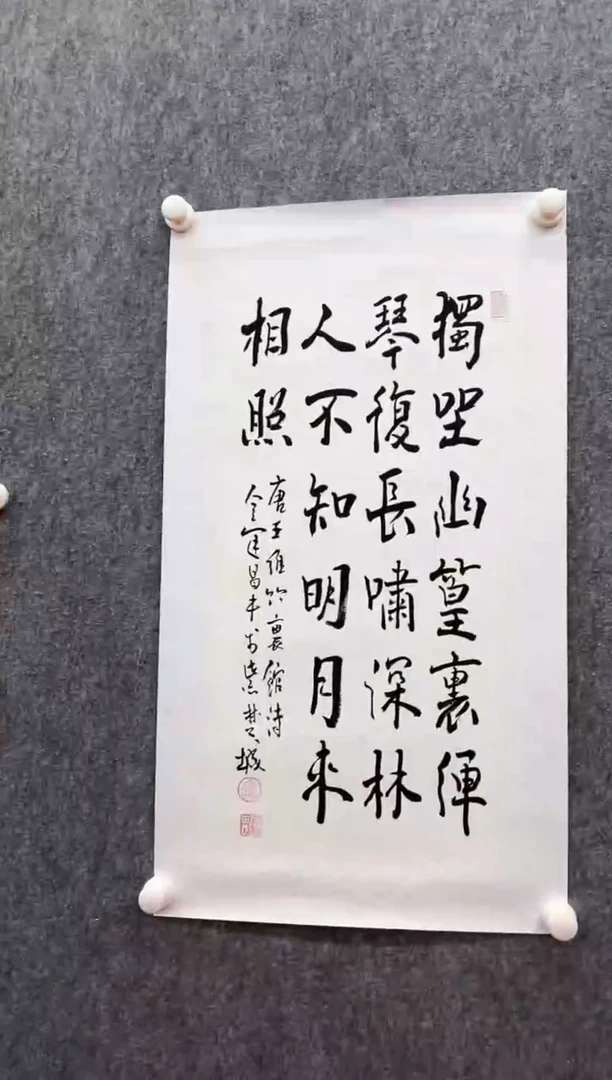 獨坐幽篁裏彈
琴復長嘯深林
人不知明月來
相照
唐王維竹裏館詩